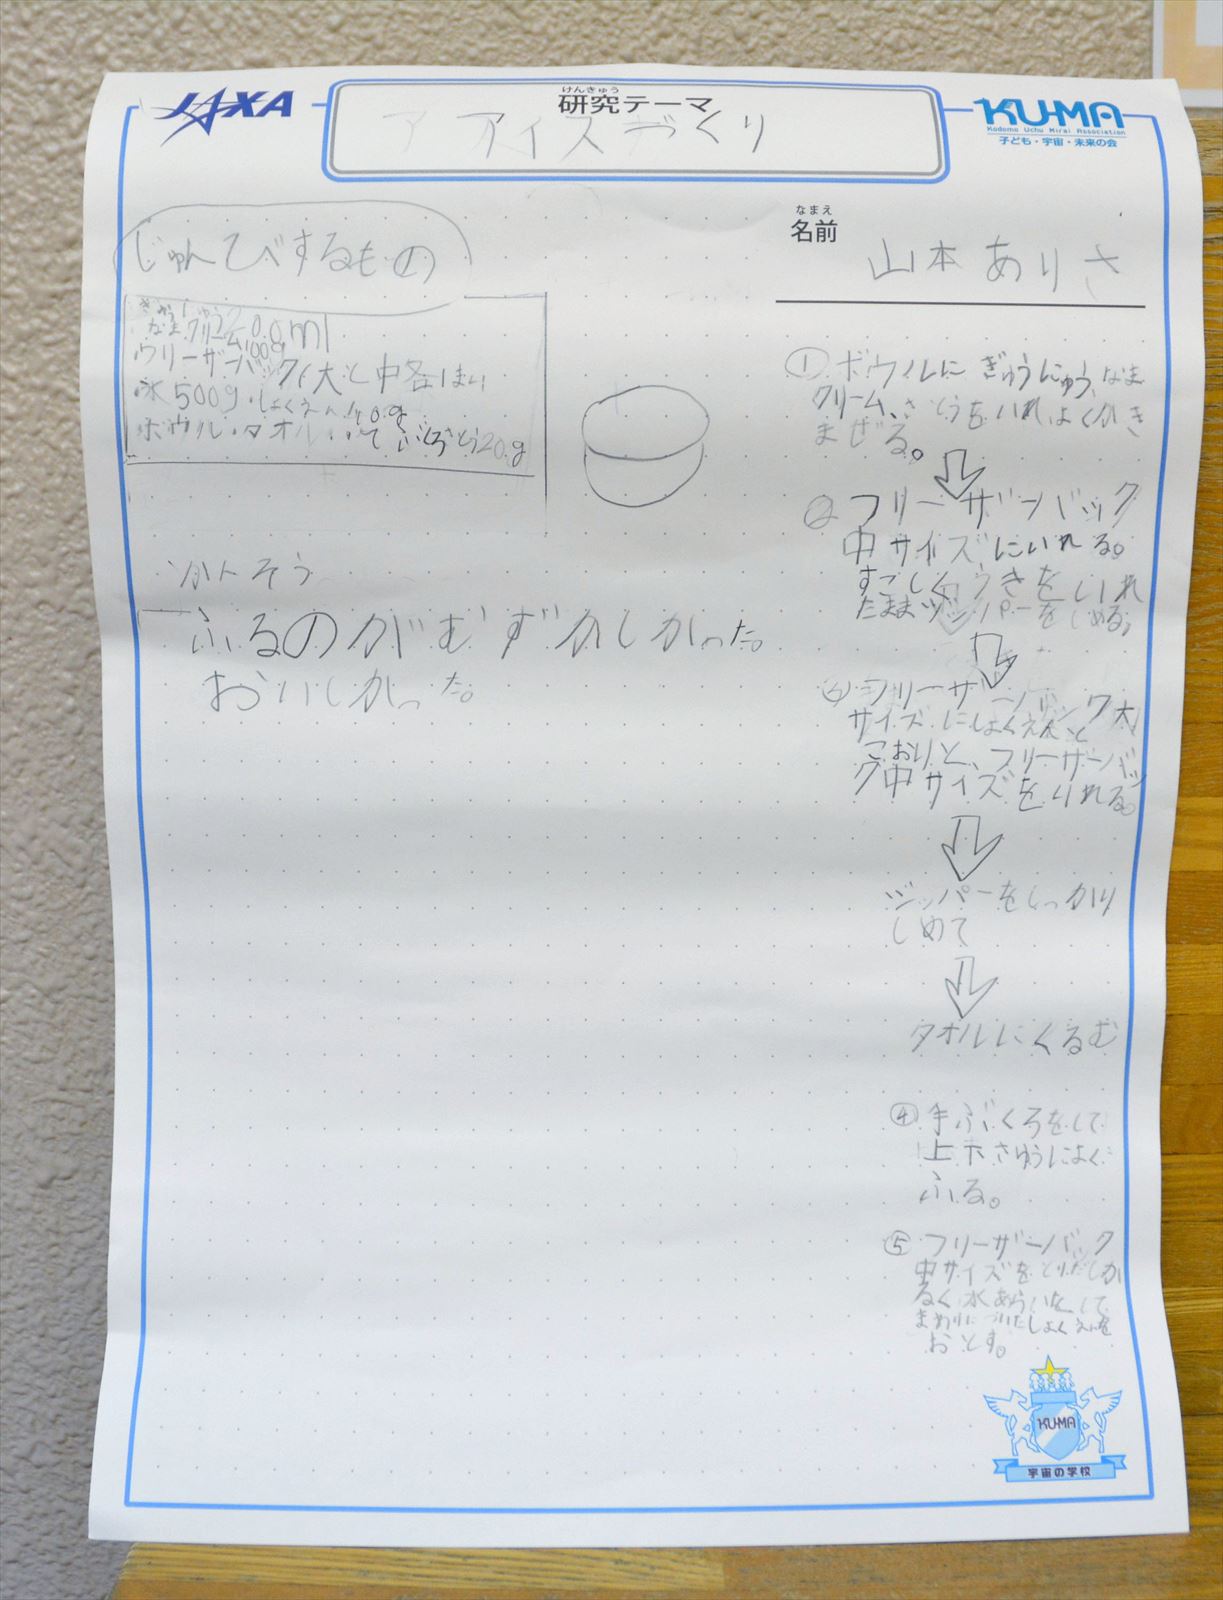 JAXA
けんきゅう
研究テーマ
アイスづくり
KU-MA
Kodomo Uchu Mirai Association
子ども・宇宙・未来の会
なまえ
名前
山本ありさ
じゅんびするもの
ぎゅうにゅう200ml
なまクリーム100g
フリーザーバック大と中各1まい
氷500g・しょくえん140g
ボウル・タオル・てぶくろさとう20g
かんそう
ふるのがむずかしかった。
おいしかった。
①ボウルにぎゅうにゅう、なま
クリーム、さとうをいれ、よくかき
まぜる。
②フリーザーバック
中サイズにいれる。
すこしくうきをいれ
たままジッパーをしめる。
フリーザーバック大
サイズにしょくえんと
こおりと、フリーザーバッ
ク中サイズをいれる。
ジッパーをしっかり
しめて
タオルにくるむ
④手ぶくろをして
上下さゆうによく
ふる。
⑤フリーザーバック
中サイズをとりだしか
るく水あらいをして
まわりについたしょくえんを
おとす。
KU-MA
宇宙の学校